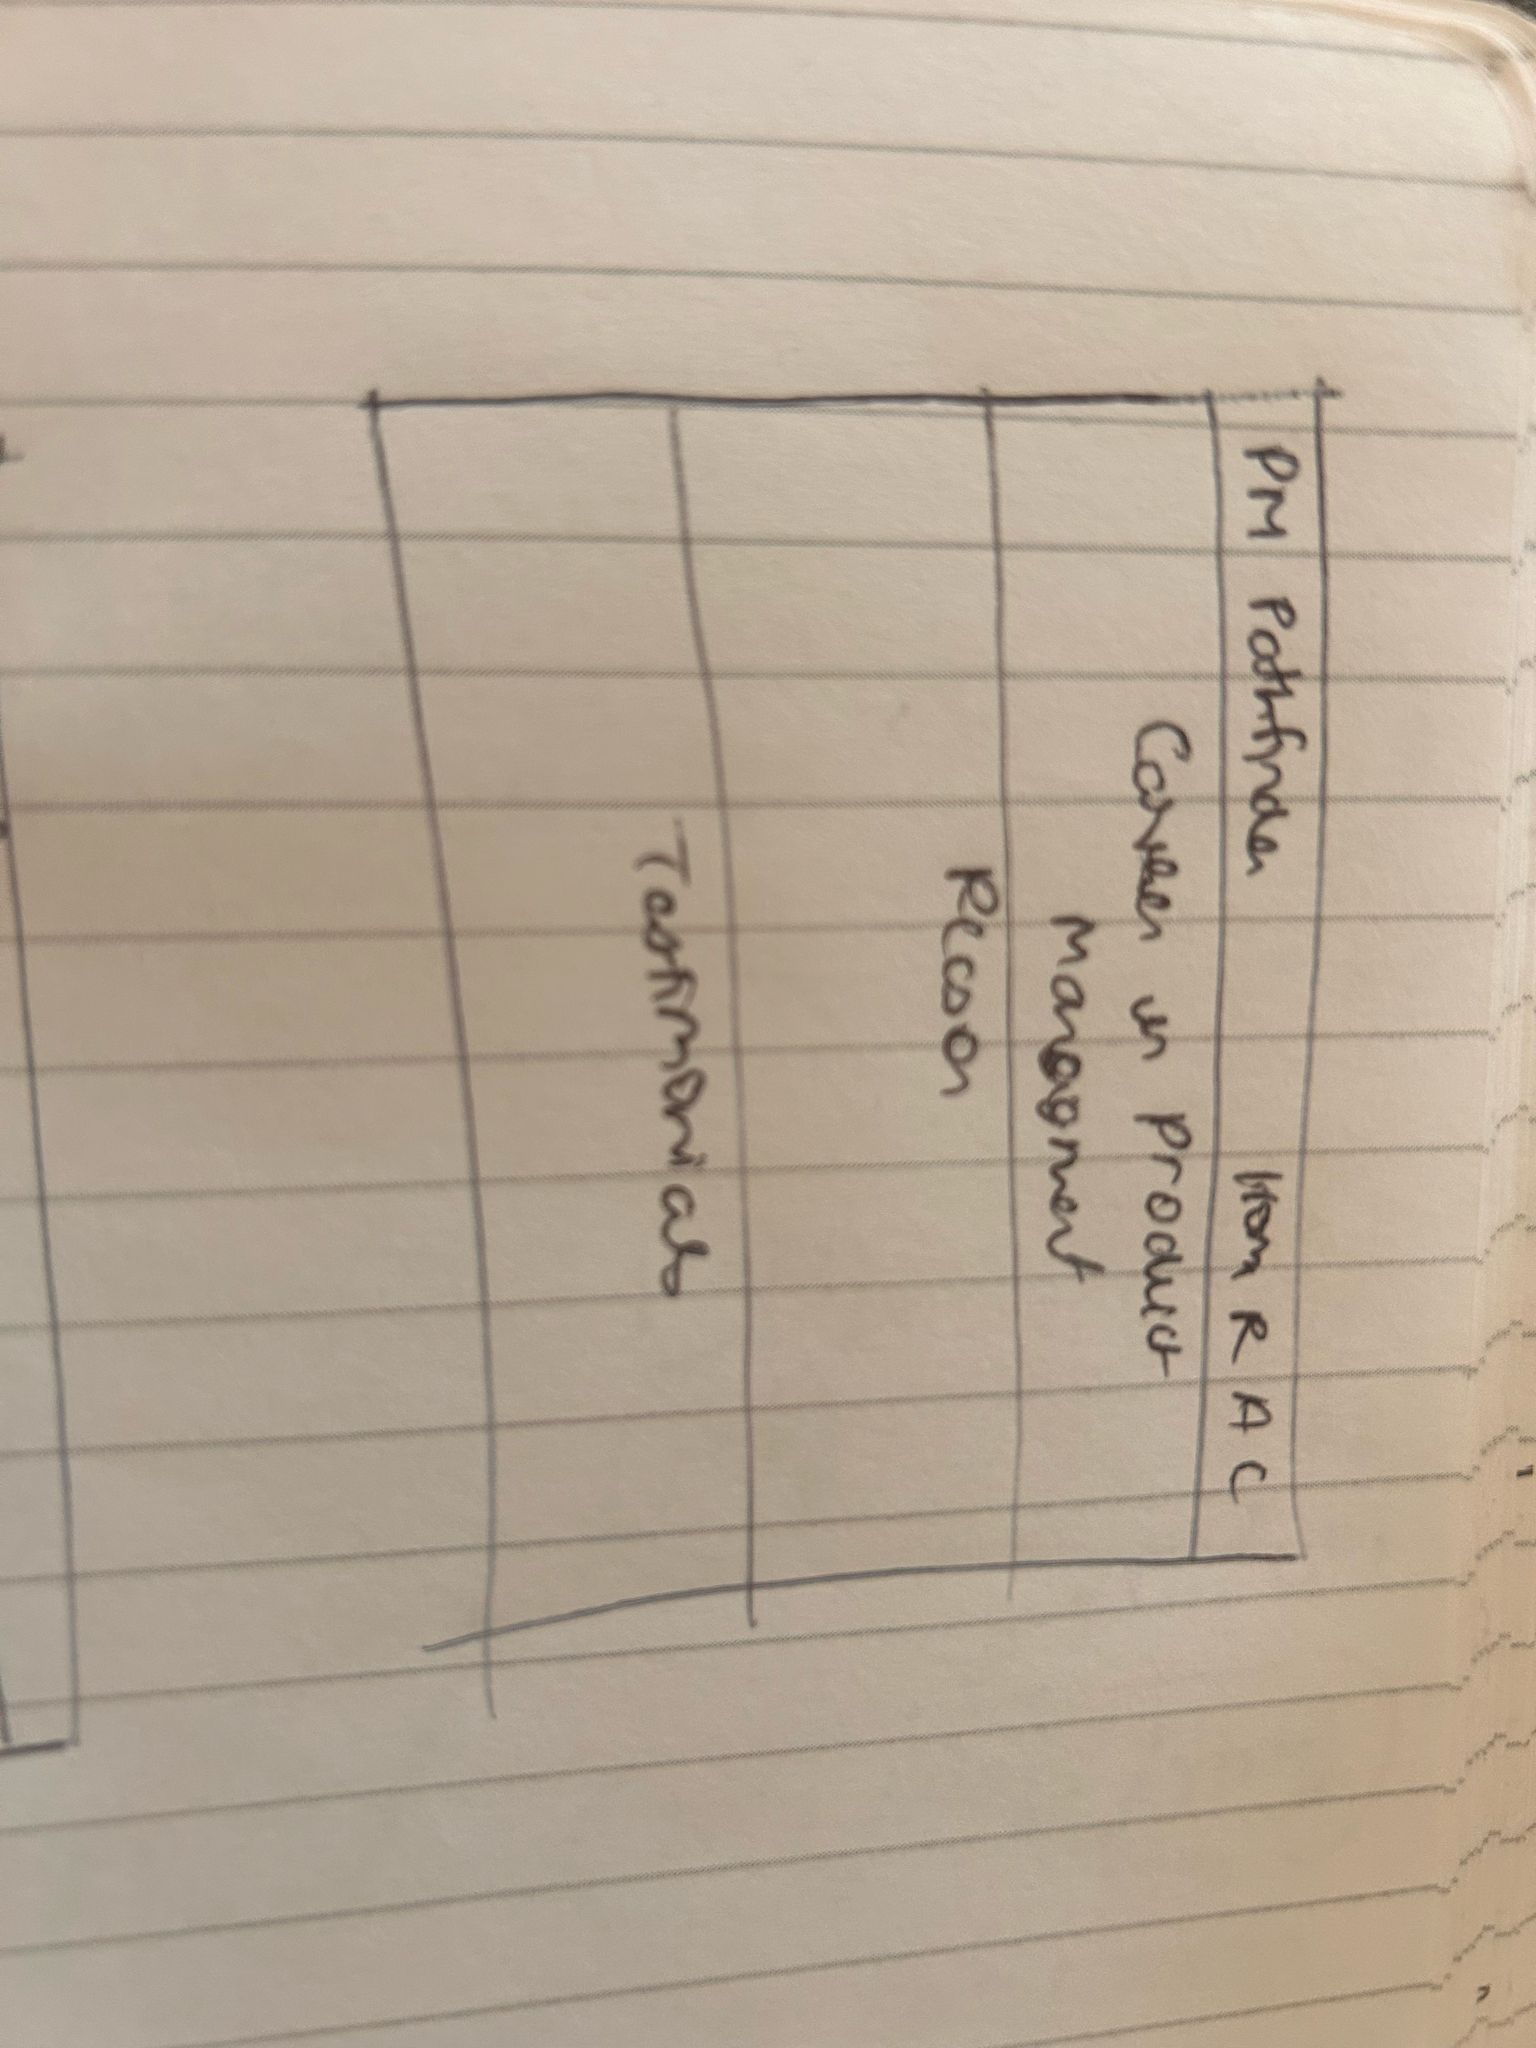 PM Pathfinder Hom R A C
Career in Product
Management
Reason
Testimonials